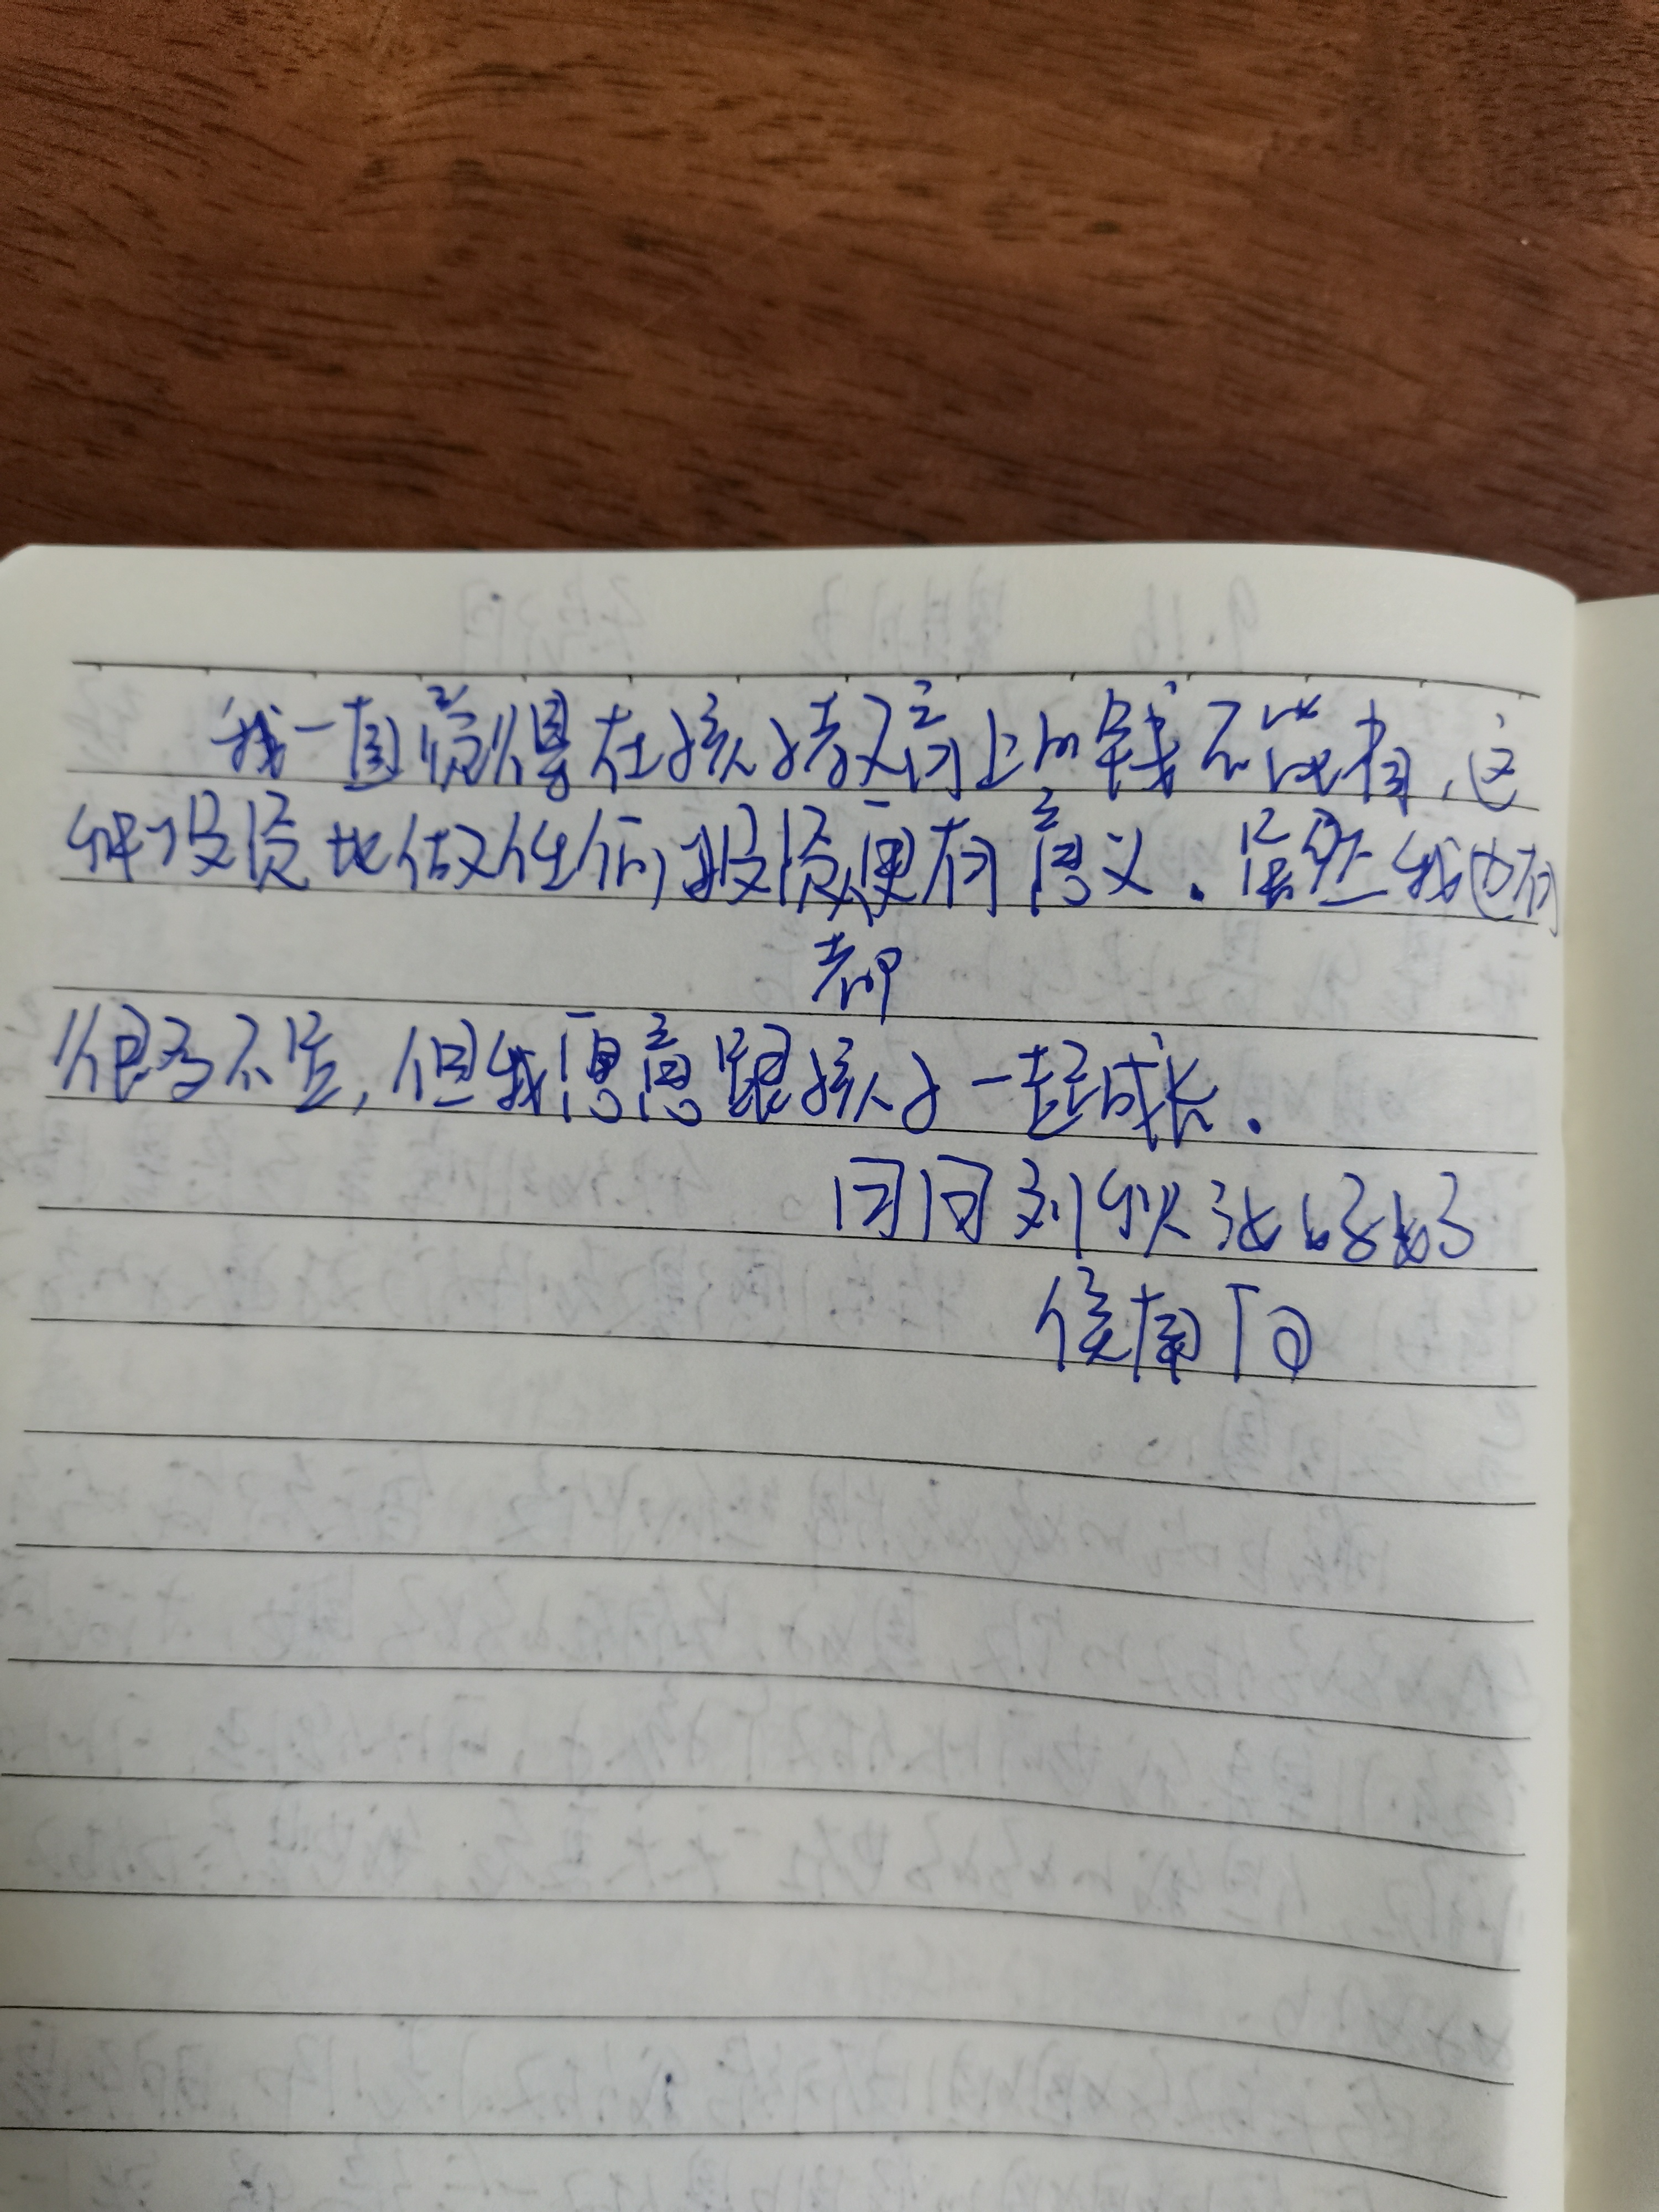 我一直觉得在孩子教育上的钱不能省,这
种投资比做任何投资更有意义。虽然我也有
老师
很多不足,但我愿意跟孩子一起成长。
同同刘 好好
侯南